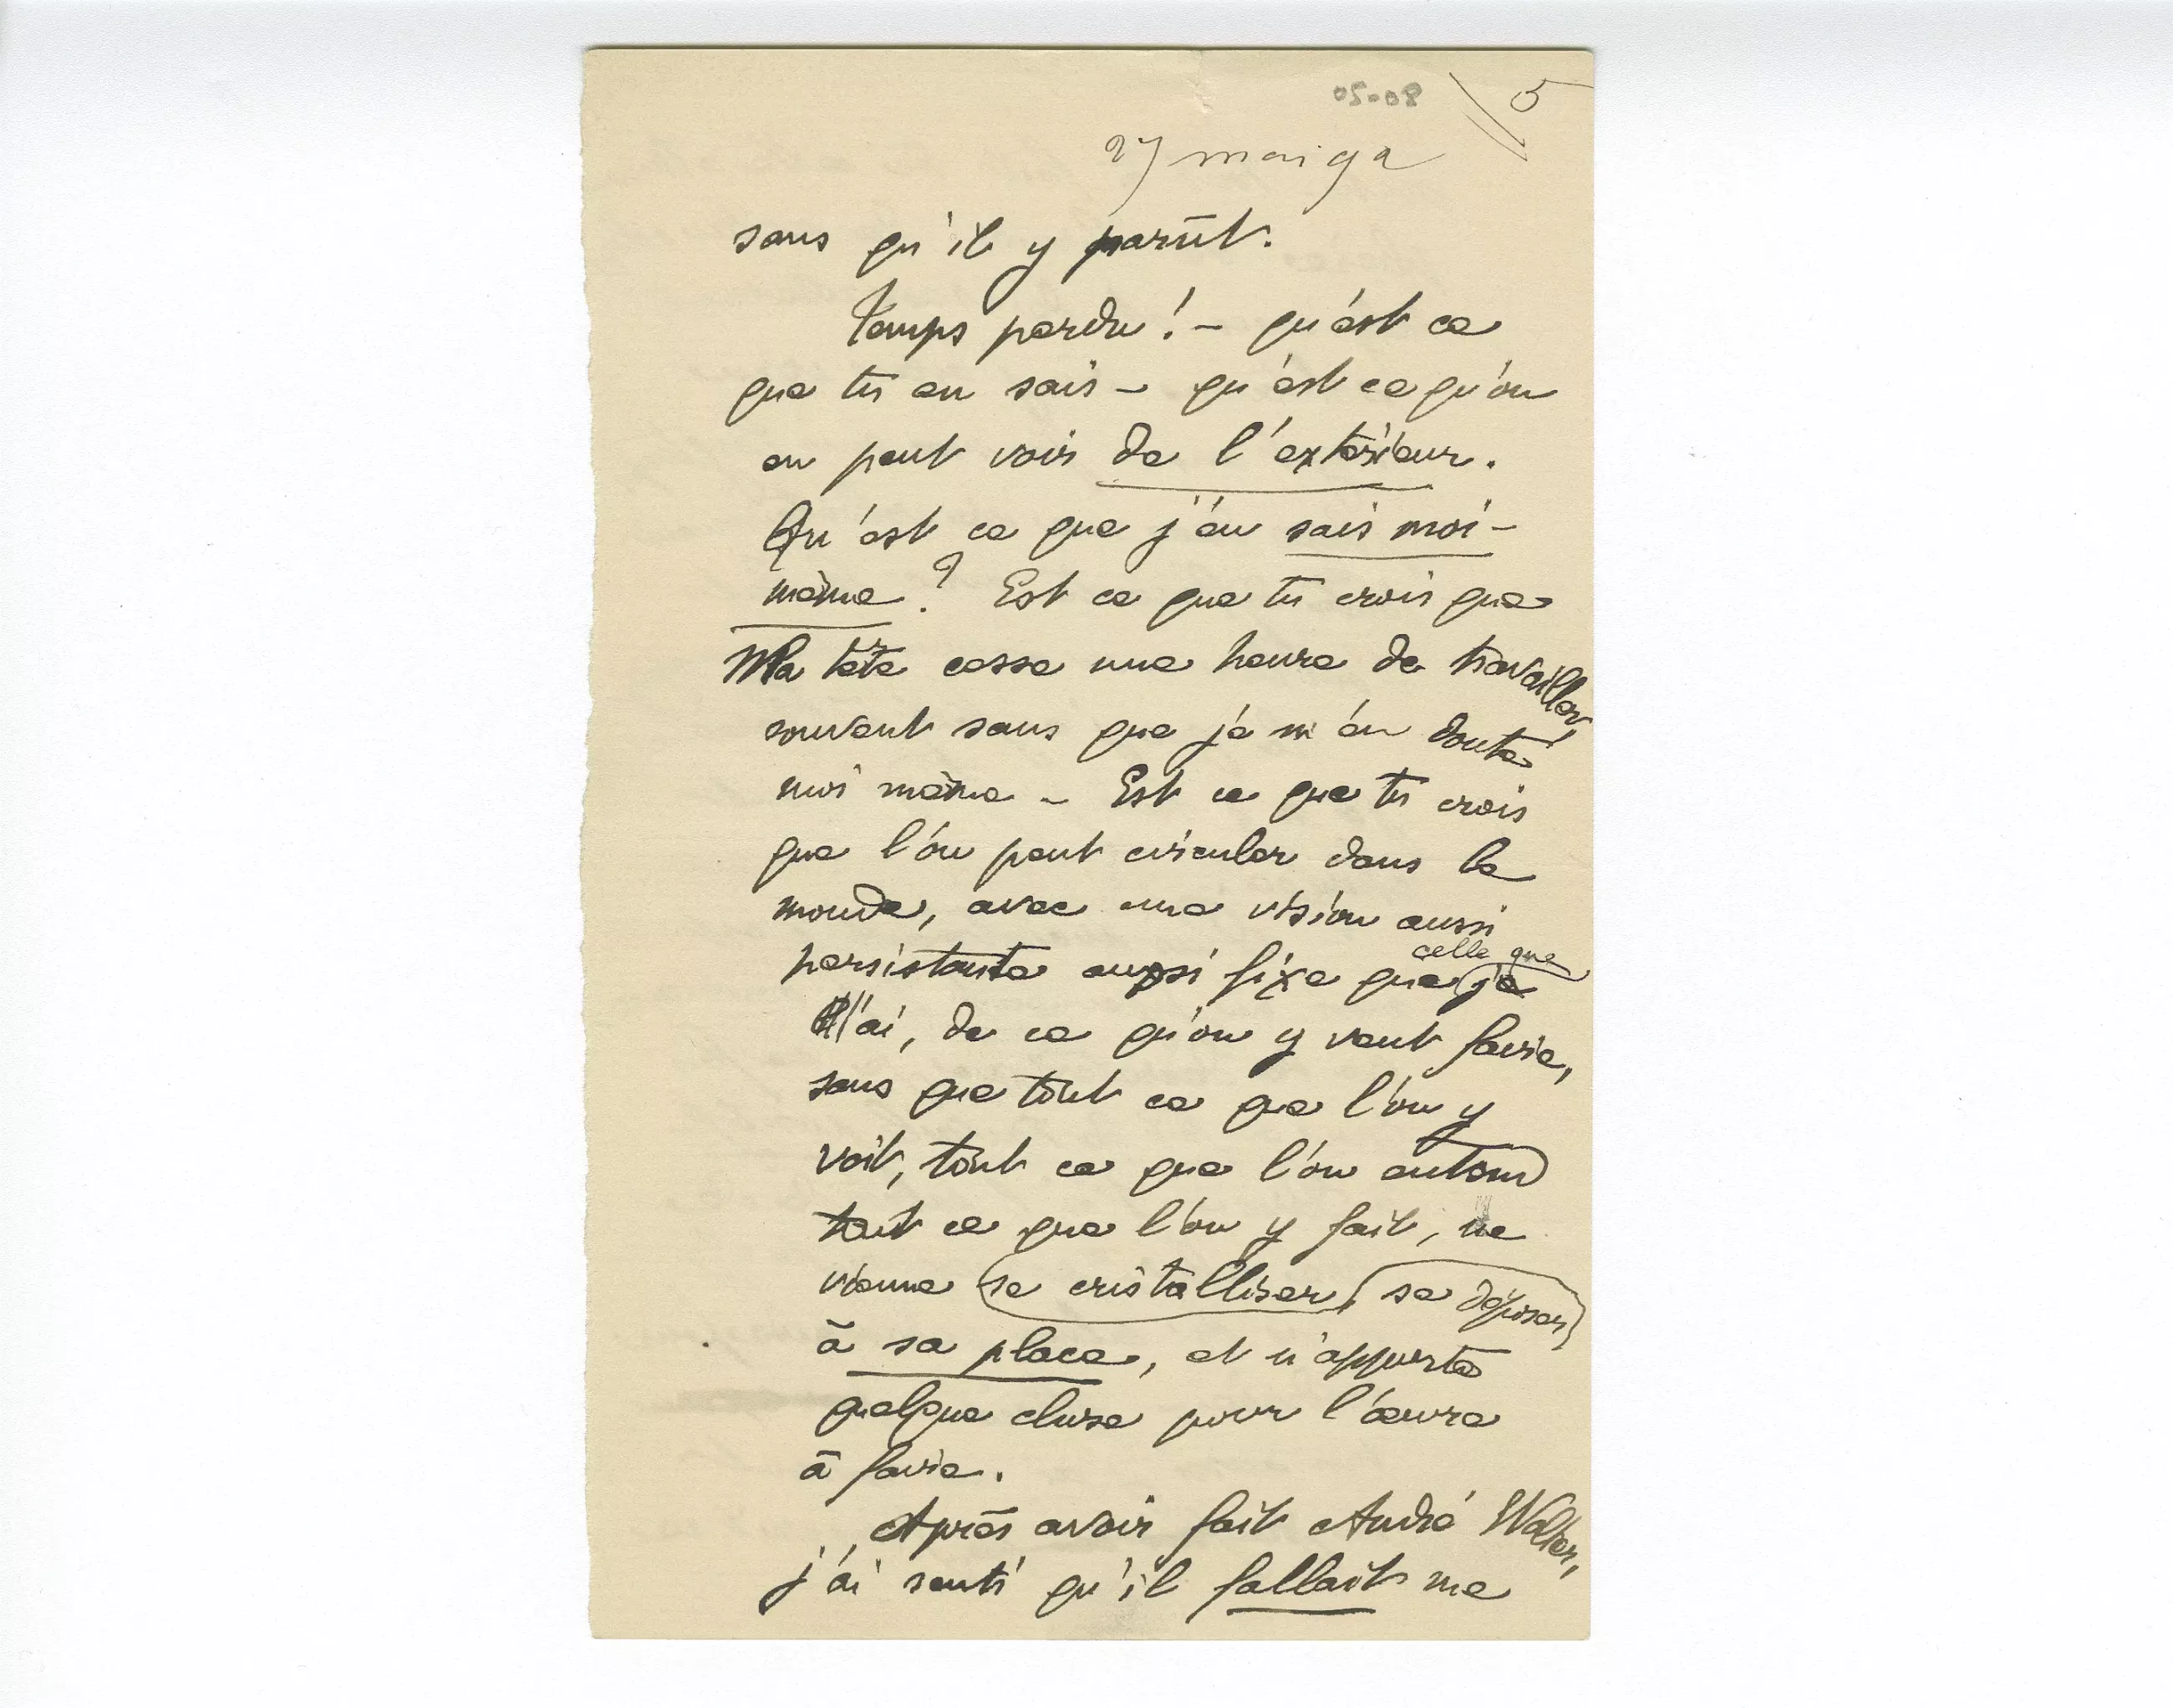 05-08
5
27 mai 92
sans qu'il y parût.
Temps perdu ! – qu'est ce
que tu en sais – qu'est ce qu'on
en peut voir de l'extérieur.
Qu'est ce que j'en sais moi-
même ? Est ce que tu crois que
Ma tête cesse une heure de travailler,
souvent sans que je m'en doute
moi même – Est ce que tu crois
que l'on peut circuler dans le
monde, avec une vision aussi
celle que
persistante aussi fixe que je
l'ai, de ce qu'on y veut faire,
sans que tout ce que l'on y
voit, tout ce que l'on entend
tout ce que l'on y fait, ne
vienne se cristalliser, se déposer
à sa place, et n'apporte
quelque chose pour l'œuvre
à faire.
Après avoir fait André Walter,
j'ai senti qu'il fallait me